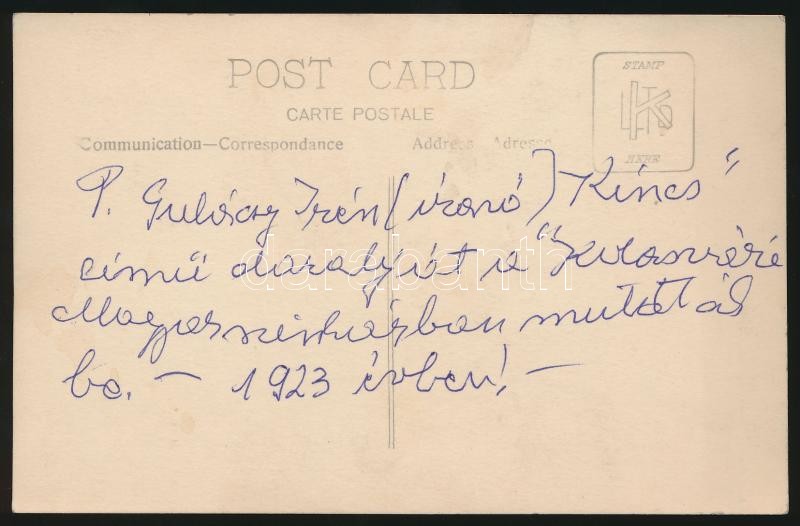 POST CARD
CARTE POSTALE
STAMP
HERE
Communication—Correspondance
Address Adresse
P. Gulácsy Irén (írónő) Kincs"
című darabját a "Kolozsvári
Magyar szinházban mutatták
be. — 1923 évben! —
darabanth